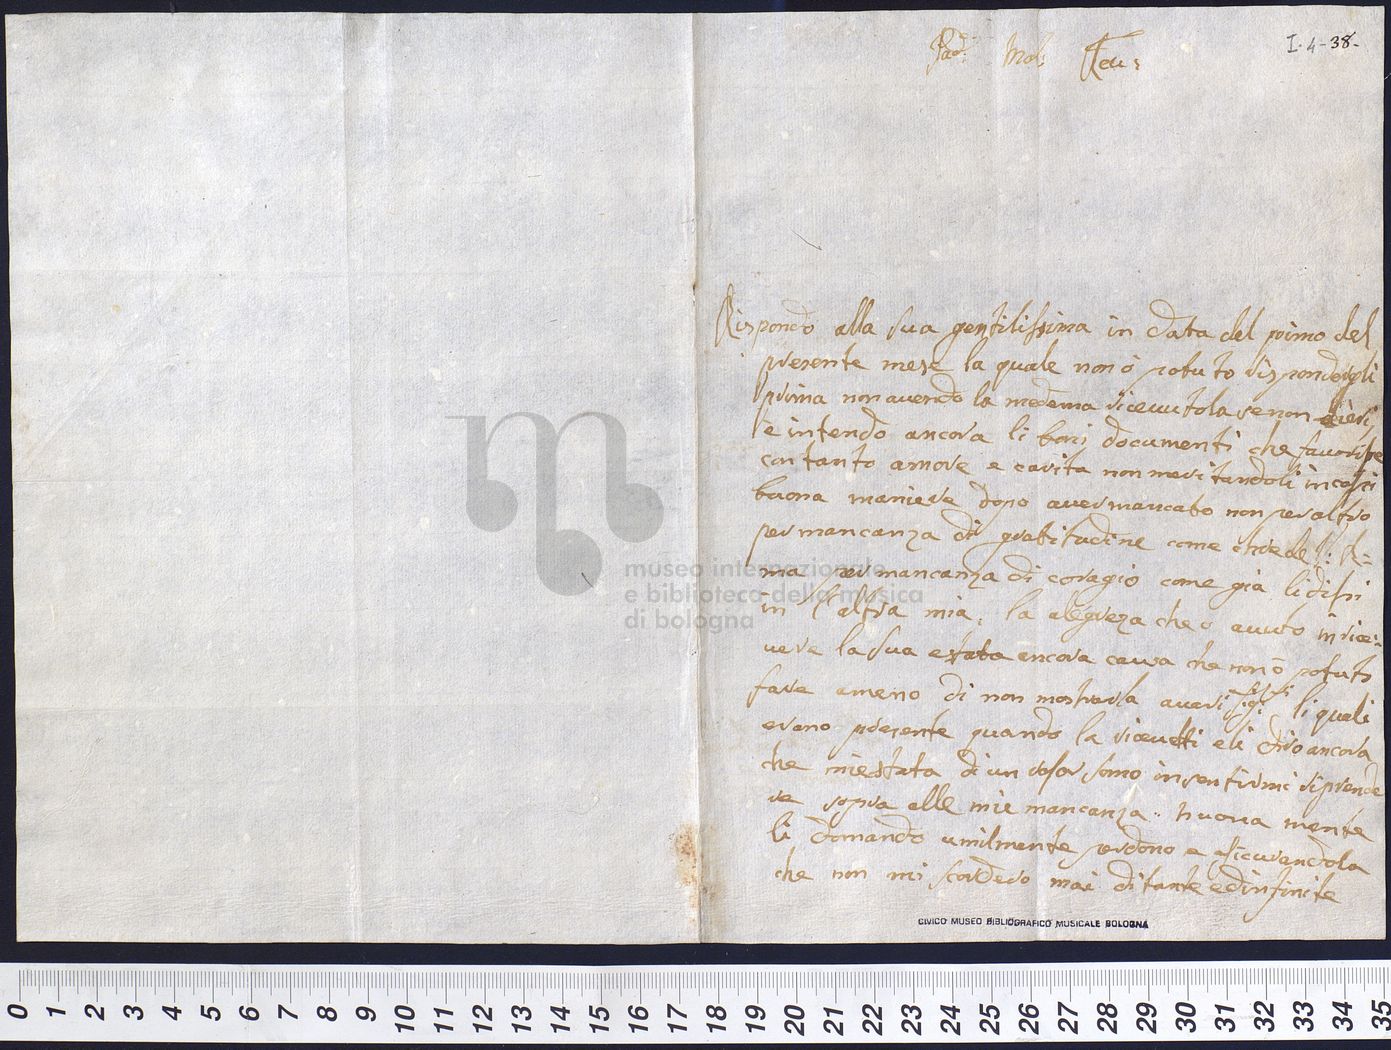 I.4-38-
Pad: Mol: Reu:
Rispondo alla sua gentilissima in data del primo del
presente mese la quale non ò potuto rispondergli
prima non auendo la medema riceuutola se non ieri
e intendo ancora li boni documenti che fauorisce
con tanto amore e carita non meritandoli in cosi
buona maniera dopo auer mancato non per altro
per mancanza di gratitudine come crede V: R:
ma per mancanza di coragio come già li dissi
in l'altra mia, la alegreza che ò auuto in rice=
uere la sua e stata ancora causa che non ò potuto
fare ameno di non mostrarla a uari Sigri li quali
erano presente quando la riceuetti e li dirò ancora
che mi e stata di un rosor somo in sentirmi riprende
re sopra alle mie mancanza. nuoua mente
li domando umilmente perdono e assicurandola
che non mi scorderò mai di tante ed infinite
CIVICO MUSEO BIBLIOGRAFICO MUSICALE BOLOGNA
museo internazionale
e biblioteca della musica
di bologna
0 1 2 3 4 5 6 7 8 9 10 11 12 13 14 15 16 17 18 19 20 21 22 23 24 25 26 27 28 29 30 31 32 33 34 35